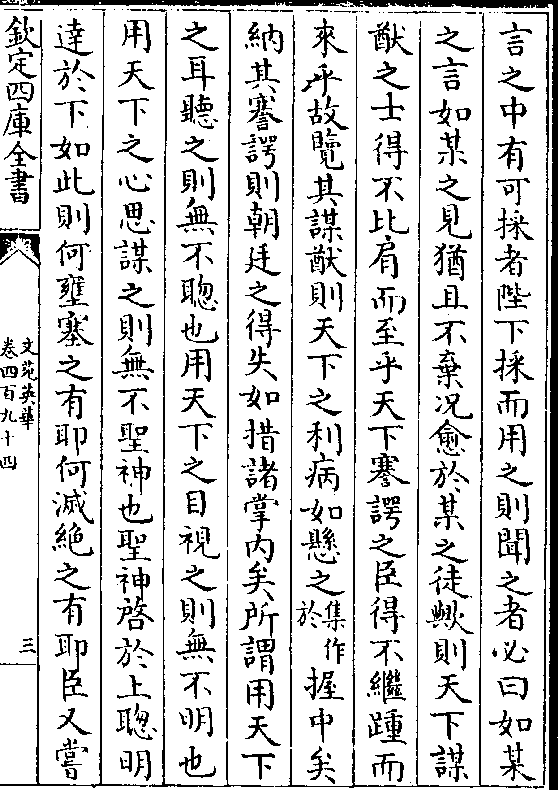 言之中有可採者陛下採而用之則聞之者必曰如某
之言如某之見猶且不棄况愈於某之徒歟則天下謀
猷之士得不比肩而至乎天下謇諤之臣得不繼踵而
來乎故覽其謀猷則天下之利病如懸之集作於握中矣
納其謇諤則朝廷之得失如措諸掌内矣所謂用天下
之耳聽之則無不聰也用天下之目視之則無不明也
用天下之心思謀之則無不聖神也聖神啓於上聰明
達於下如此則何壅塞之有耶何滅絶之有耶臣又嘗
欽定四庫全書
文苑英華
卷四百九十四
三